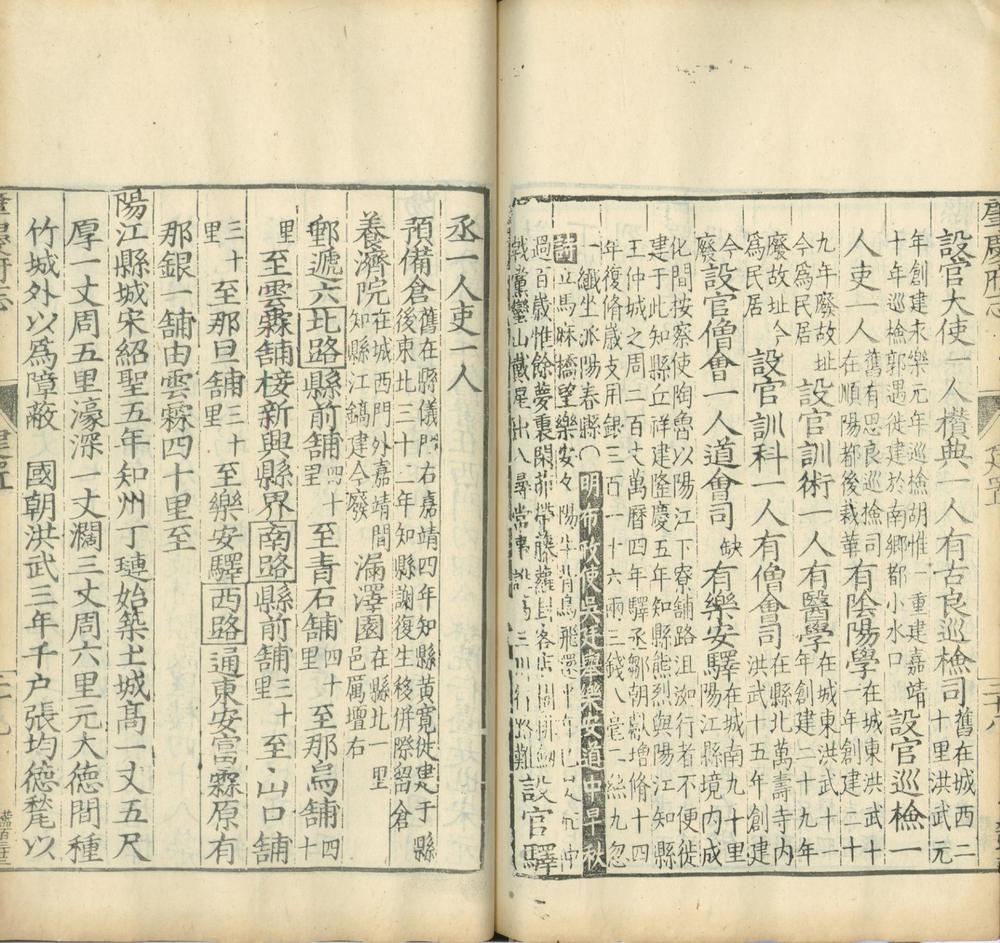 肇慶府志
設官大使一人攢典一人有古良巡檢司舊在城西二
十里洪武元
年創建永樂元年巡檢胡惟一重建嘉靖
十年巡檢郭遇徙建於南鄉都小水口設官巡檢一
人吏一人舊有思良巡檢司
在順陽都後裁革有陰陽學在城東洪武十
一年創建二十
九年廢故址
今為民居設官訓術一人有醫學在城東洪武十一
年創建二十九年
廢故址今
為民居設官訓科一人有僧會司在縣北萬壽寺內
洪武十五年創建
今廢設官僧會一人道會司缺有樂安驛在城南九十里
陽江縣境內成
化間按察使陶魯以陽江下寮舖路沮洳行者不便徙
建于此知縣丘祥建隆慶五年知縣熊烈與陽江知縣
王仲城之周二百丈萬曆四年驛丞鄒朝獻增脩十四
年復脩歲支用銀三百一十六兩三錢八毫二絲九忽
一纖坐派陽春縣〇明布政使吳廷舉樂安道中早秋
詩立馬麻橋望樂安々陽
過百歲惟餘夢裏閑茆帶藤蘿
出入尋常事
設官驛
丞一人吏一人
預備倉舊在縣儀門右嘉靖四年知縣黃寬徙建于縣
後東北三十二年知縣謝復生移併際留倉
養濟院在城西門外嘉靖間
知縣江鎬建今廢漏澤園在縣北一里
邑厲壇右
郵遞六北路縣前舖四十
里至青石舖四十
里至那烏舖四
十
里至雲霖舖接新興縣界南路縣前舖三十
里至山口舖
三十
里至那旦舖三十
里至樂安驛西路通東安富霖原有
那銀一舖由雲霖四十里至
陽江縣城宋紹聖五年知州丁璉始築土城高一丈五尺
厚一丈周五里濠深一丈濶三丈周六里元大德間種
竹城外以為障蔽 國朝洪武三年千户張均德甃以